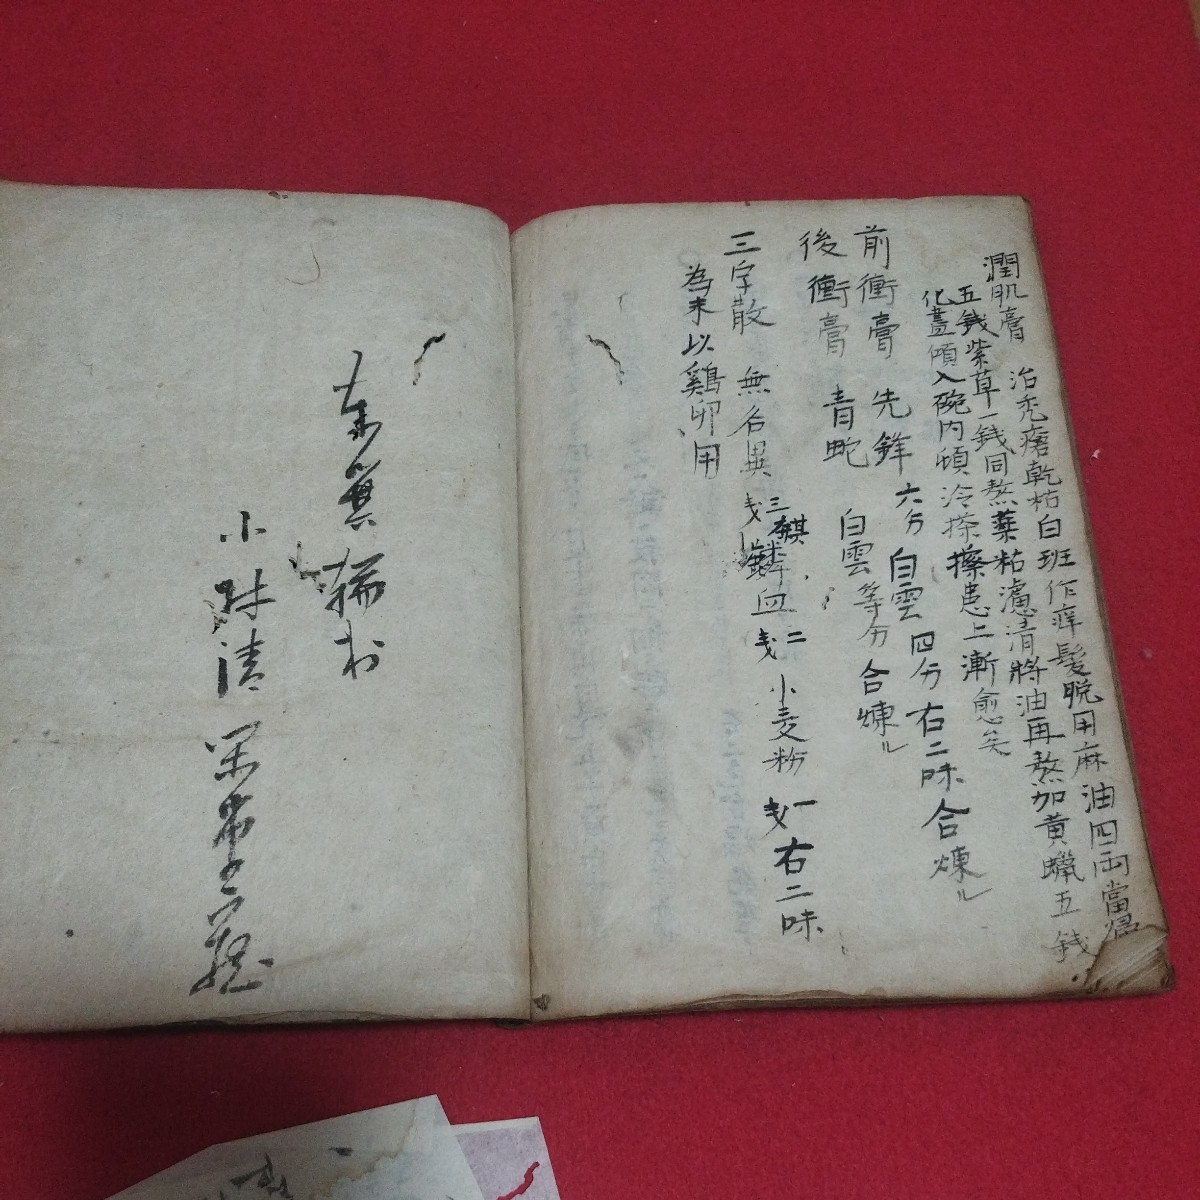 潤肌膏 治禿瘡乾枯白班作痒髮脱用麻油四両當歸
五銭紫草一銭同熬藥粘濾清將油再熬加黄蠟五銭
化盡傾入碗内頓冷搽擦患上漸愈矣
前衝膏 先鋒六分 白雲四分 右二味合煉ル
後衝膏 青蛇 白雲等分合煉ル
三字散 無名異三戔 麒麟血二戔 小麦粉一戔 右二味
為末以鷄卵用
小林清